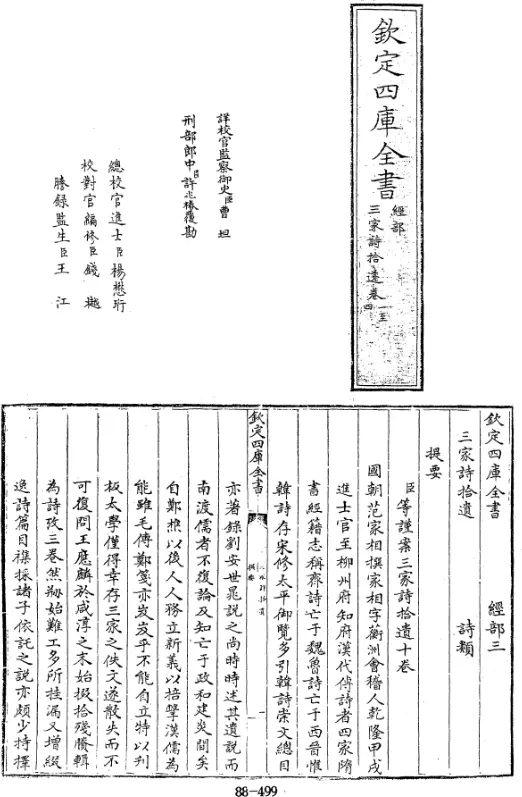 欽定四庫全書
經部
三家詩拾遺卷一至四
詳校官監察御史臣曹坦
刑部郎中臣許兆椿覆勘
總校官進士臣楊懋珩
校對官編修臣錢樾
謄録監生臣王江
欽定四庫全書 經部三
三家詩拾遺 詩類
提要
臣等謹案三家詩拾遺十卷
國朝范家相撰家相字蘅洲會稽人乾隆甲戌
進士官至柳州府知府漢代傳詩者四家隋
書經籍志稱齊詩亡于魏魯詩亡于西晉惟
韓詩存宋修太平御覽多引韓詩崇文總目
欽定四庫全書
三家詩拾遺
提要
一
亦著錄劉安世晁說之尚時時述其遺說而
南渡儒者不復論及知亡于政和建炎間矣
自鄭樵以後人人務立新義以掊擊漢儒為
能雖毛傳鄭箋亦岌岌乎不能自立特以列
板太學僅得幸存三家之佚文遂散失而不
可復問王應麟於咸淳之末始掇拾殘賸輯
為詩攷三卷然剏始難工多所挂漏又增綴
逸詩篇目雜採諸子依託之說亦頗少持擇
88-499